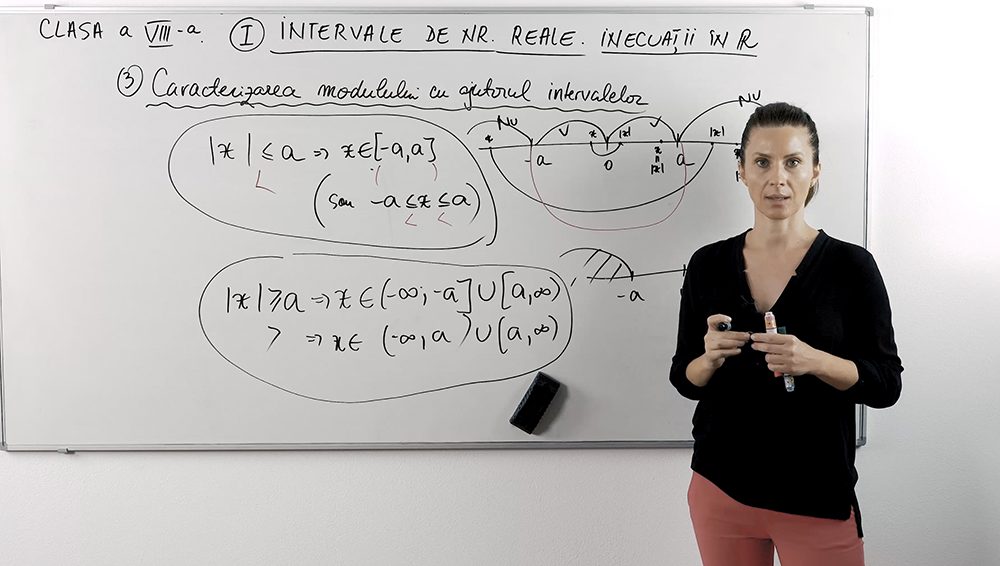 CLASA a VIII-a. I INTERVALE DE NR. REALE. INECUAȚII ÎN R
③ Caracterizarea modulului cu ajutorul intervalelor
|x| ≤ a ⇒ x∈[-a,a]
<
( )
(sau -a ≤ x ≤ a)
< <
NU x |x| NU |x|
-a 0 x = |x| a
|x| ≥ a ⇒ x ∈ (-∞, -a] ∪ [a, ∞)
> ⇒ x ∈ (-∞, a) ∪ (a, ∞)
-a